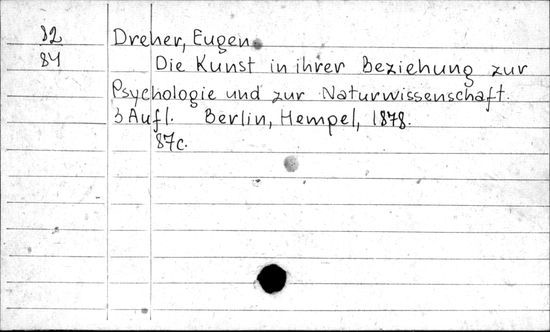 82
84
Dreher, Eugen.
Die Kunst in ihrer Beziehung zur
Psychologie und zur Naturwissenschaft.
3 Aufl. Berlin, Hempel, 1878.
87c.